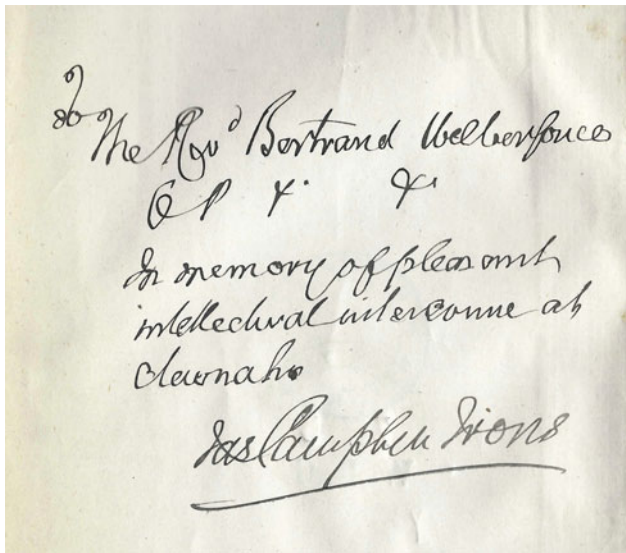 To
The Revd Bertrand Wilberforce
O P &. &.
In memory of pleasant
intellectual intercourse at
Jas Campbell Irons